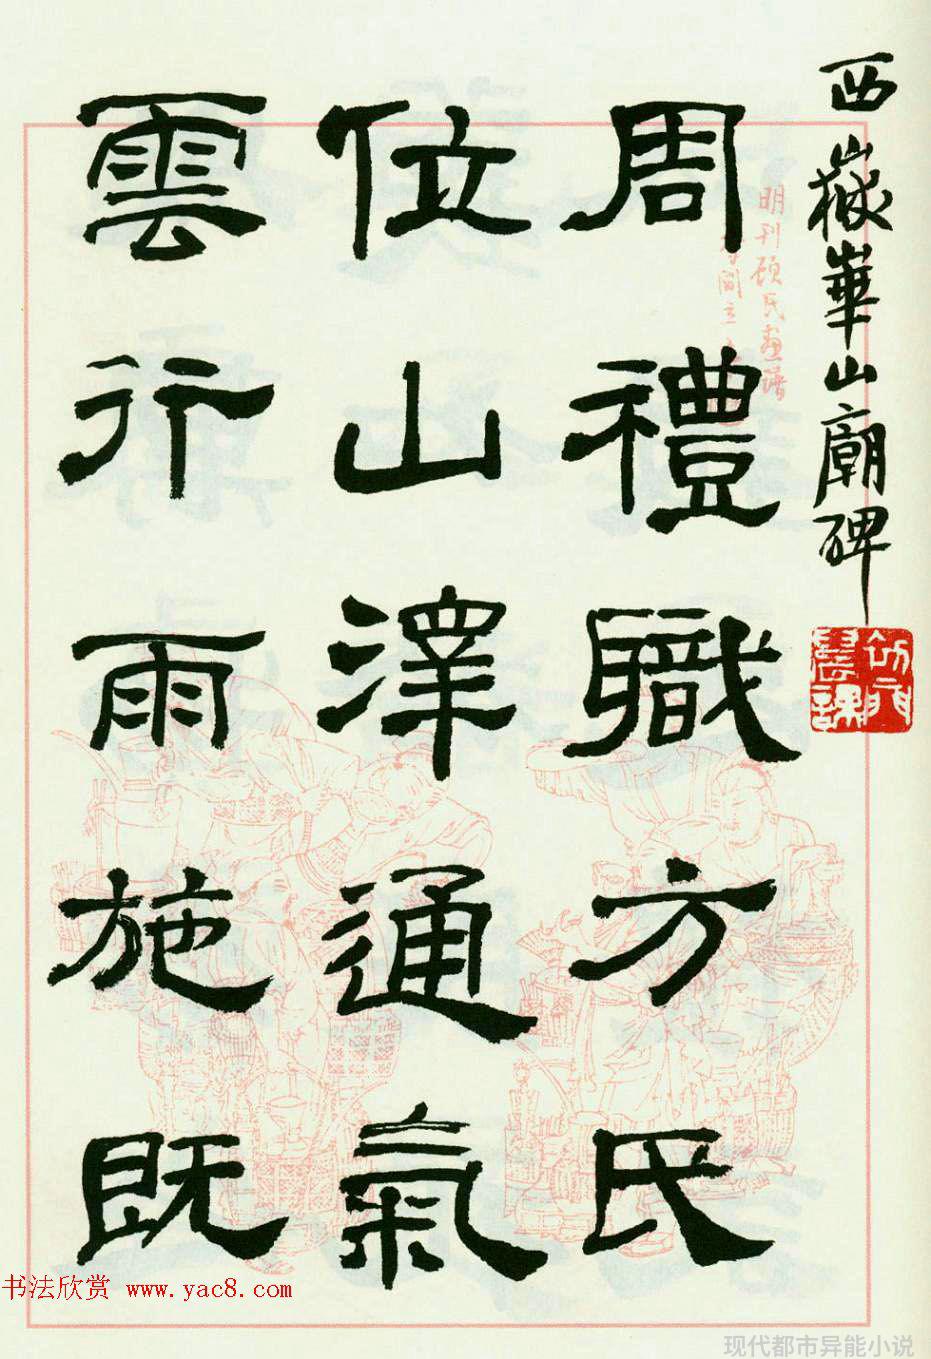 西嶽華山廟碑
周禮職方氏
位山澤通氣
雲行雨施既
明刊顾氏画谱
书法欣赏 www.yac8.com
现代都市异能小说